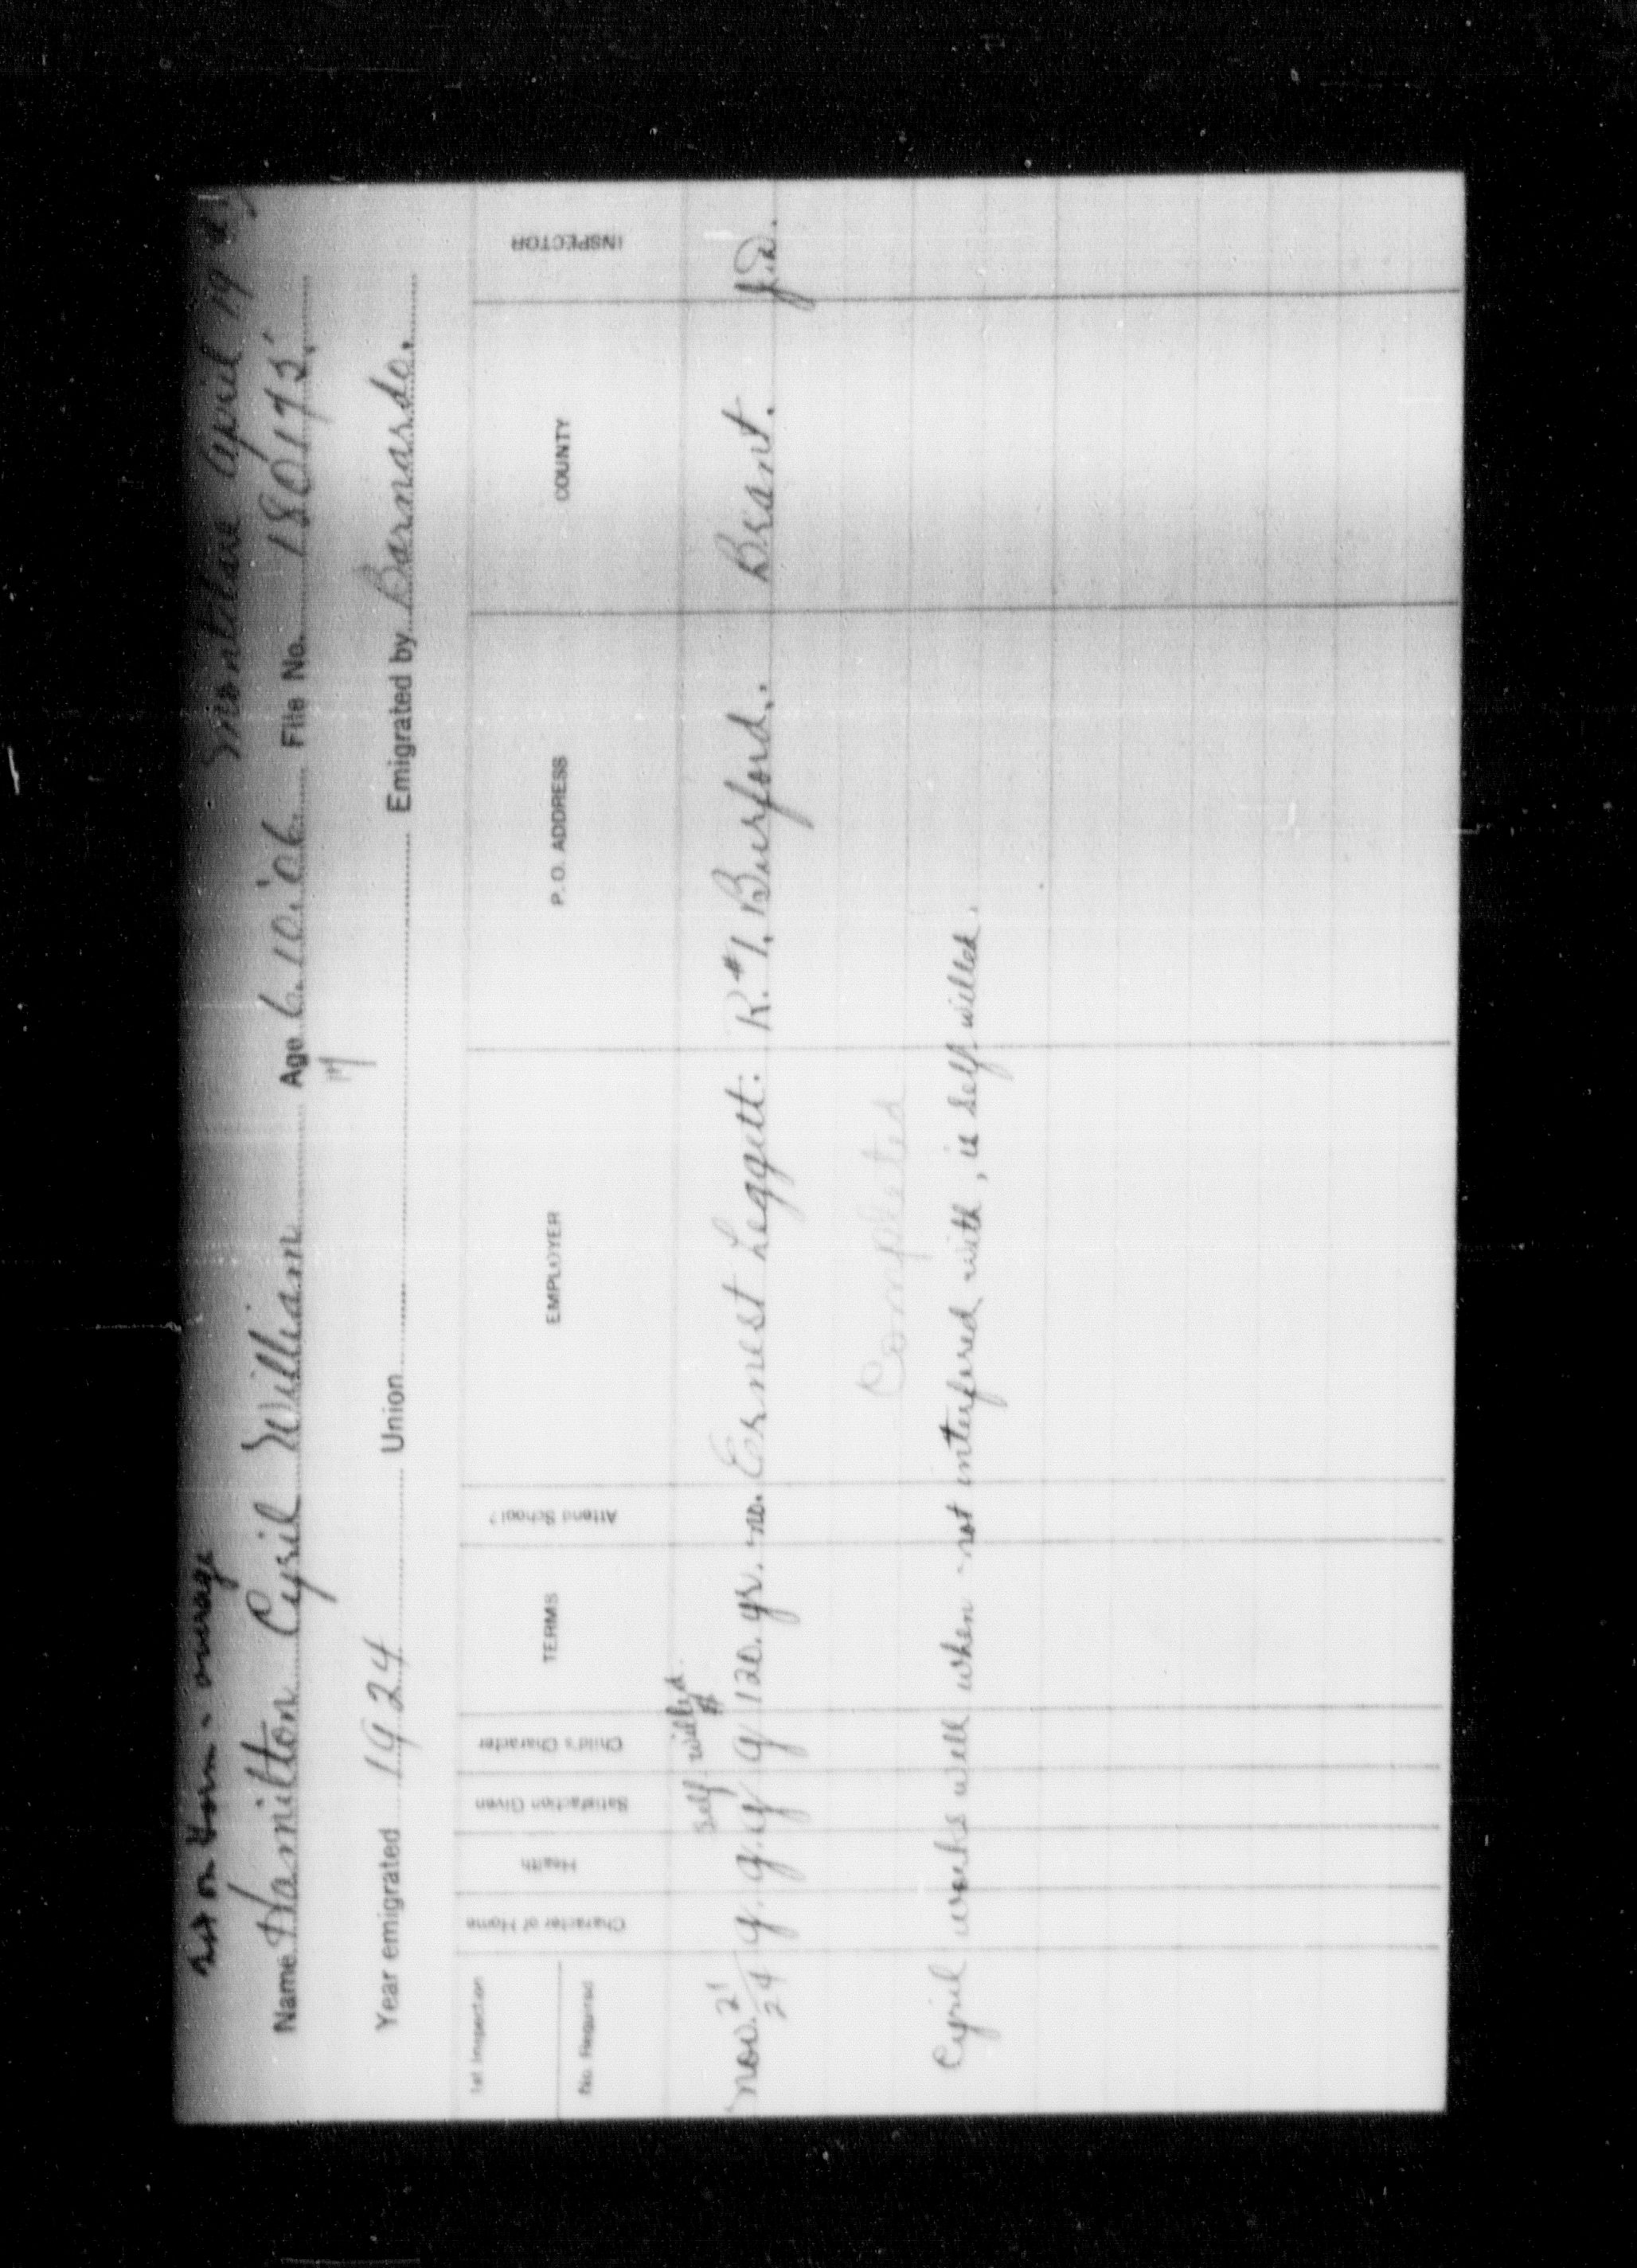 not on Form - overage Montclare April 19 24
Name Hamilton Cyril William Age 6.10.06. File No. 180175.
17
Year emigrated 1924 Union Emigrated by Barnardo.
1st Inspection
No. Required
Character of Home Health Satisfaction Given Child's Character TERMS Attend School? EMPLOYER P. O. ADDRESS COUNTY INSPECTOR
self willed.
Nov. 21/24 g. g. g g $120. yr. no. Ernest Leggett: R.#1. Burford. Brant.
Completed
Cyril works well when not interfered with, is self willed.